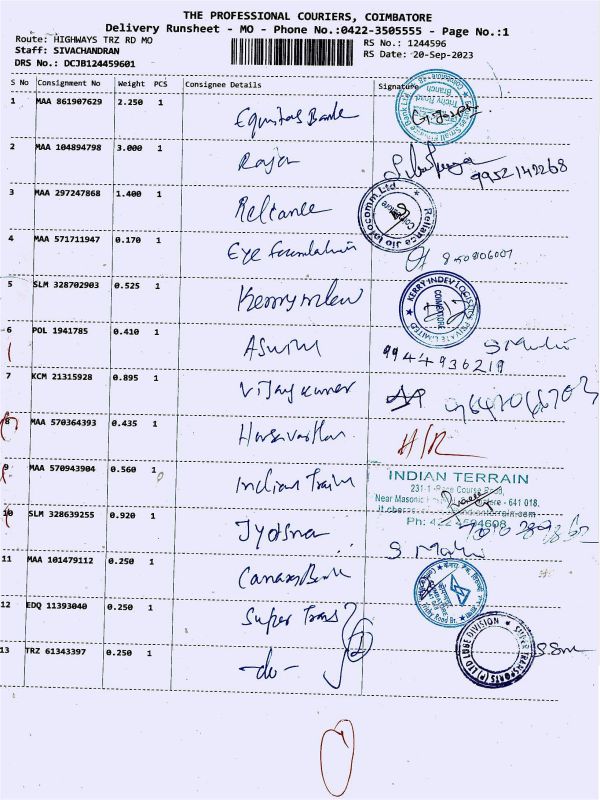 THE PROFESSIONAL COURIERS, COIMBATORE
Delivery Runsheet - MO - Phone No.:0422-3505555 - Page No.:1
Route: HIGHWAYS TRZ RD MO
RS No.: 1244596
Staff: SIVACHANDRAN
RS Date: 20-Sep-2023
DRS No.: DCJB124459601
S No Consignment No Weight PCS Consignee Details Signature
1 MAA 861907629 2.250 1 Equitas Bank
2 MAA 104894798 3.000 1 Raja 9952142268
3 MAA 297247868 1.400 1 Reliance
Reliance Jio Infocomm.Ltd.
4 MAA 571711947 0.170 1 Eye Foundation
5 SLM 328702903 0.525 1 Kerry Indev
KERRY INDEV LOGISTICS PRIVATE LIMITED
COIMBATORE
6 POL 1941785 0.410 1 Aswin 9944936219
7 KCM 21315928 0.895 1 Vijaykumar
8 MAA 570364393 0.435 1 H/R
9 MAA 570943904 0.560 1 Indian Train
INDIAN TERRAIN
231-1 Race Course Road,
Near Masonic
- 641 018.
10 SLM 328639255 0.920 1 Jyotsna
11 MAA 101479112 0.250 1 Canara Bank
12 EDQ 11393040 0.250 1 Super Trans
13 TRZ 61343397 0.250 1 -do-
TRANSPORTS (P) LTD LUBE DIVISION